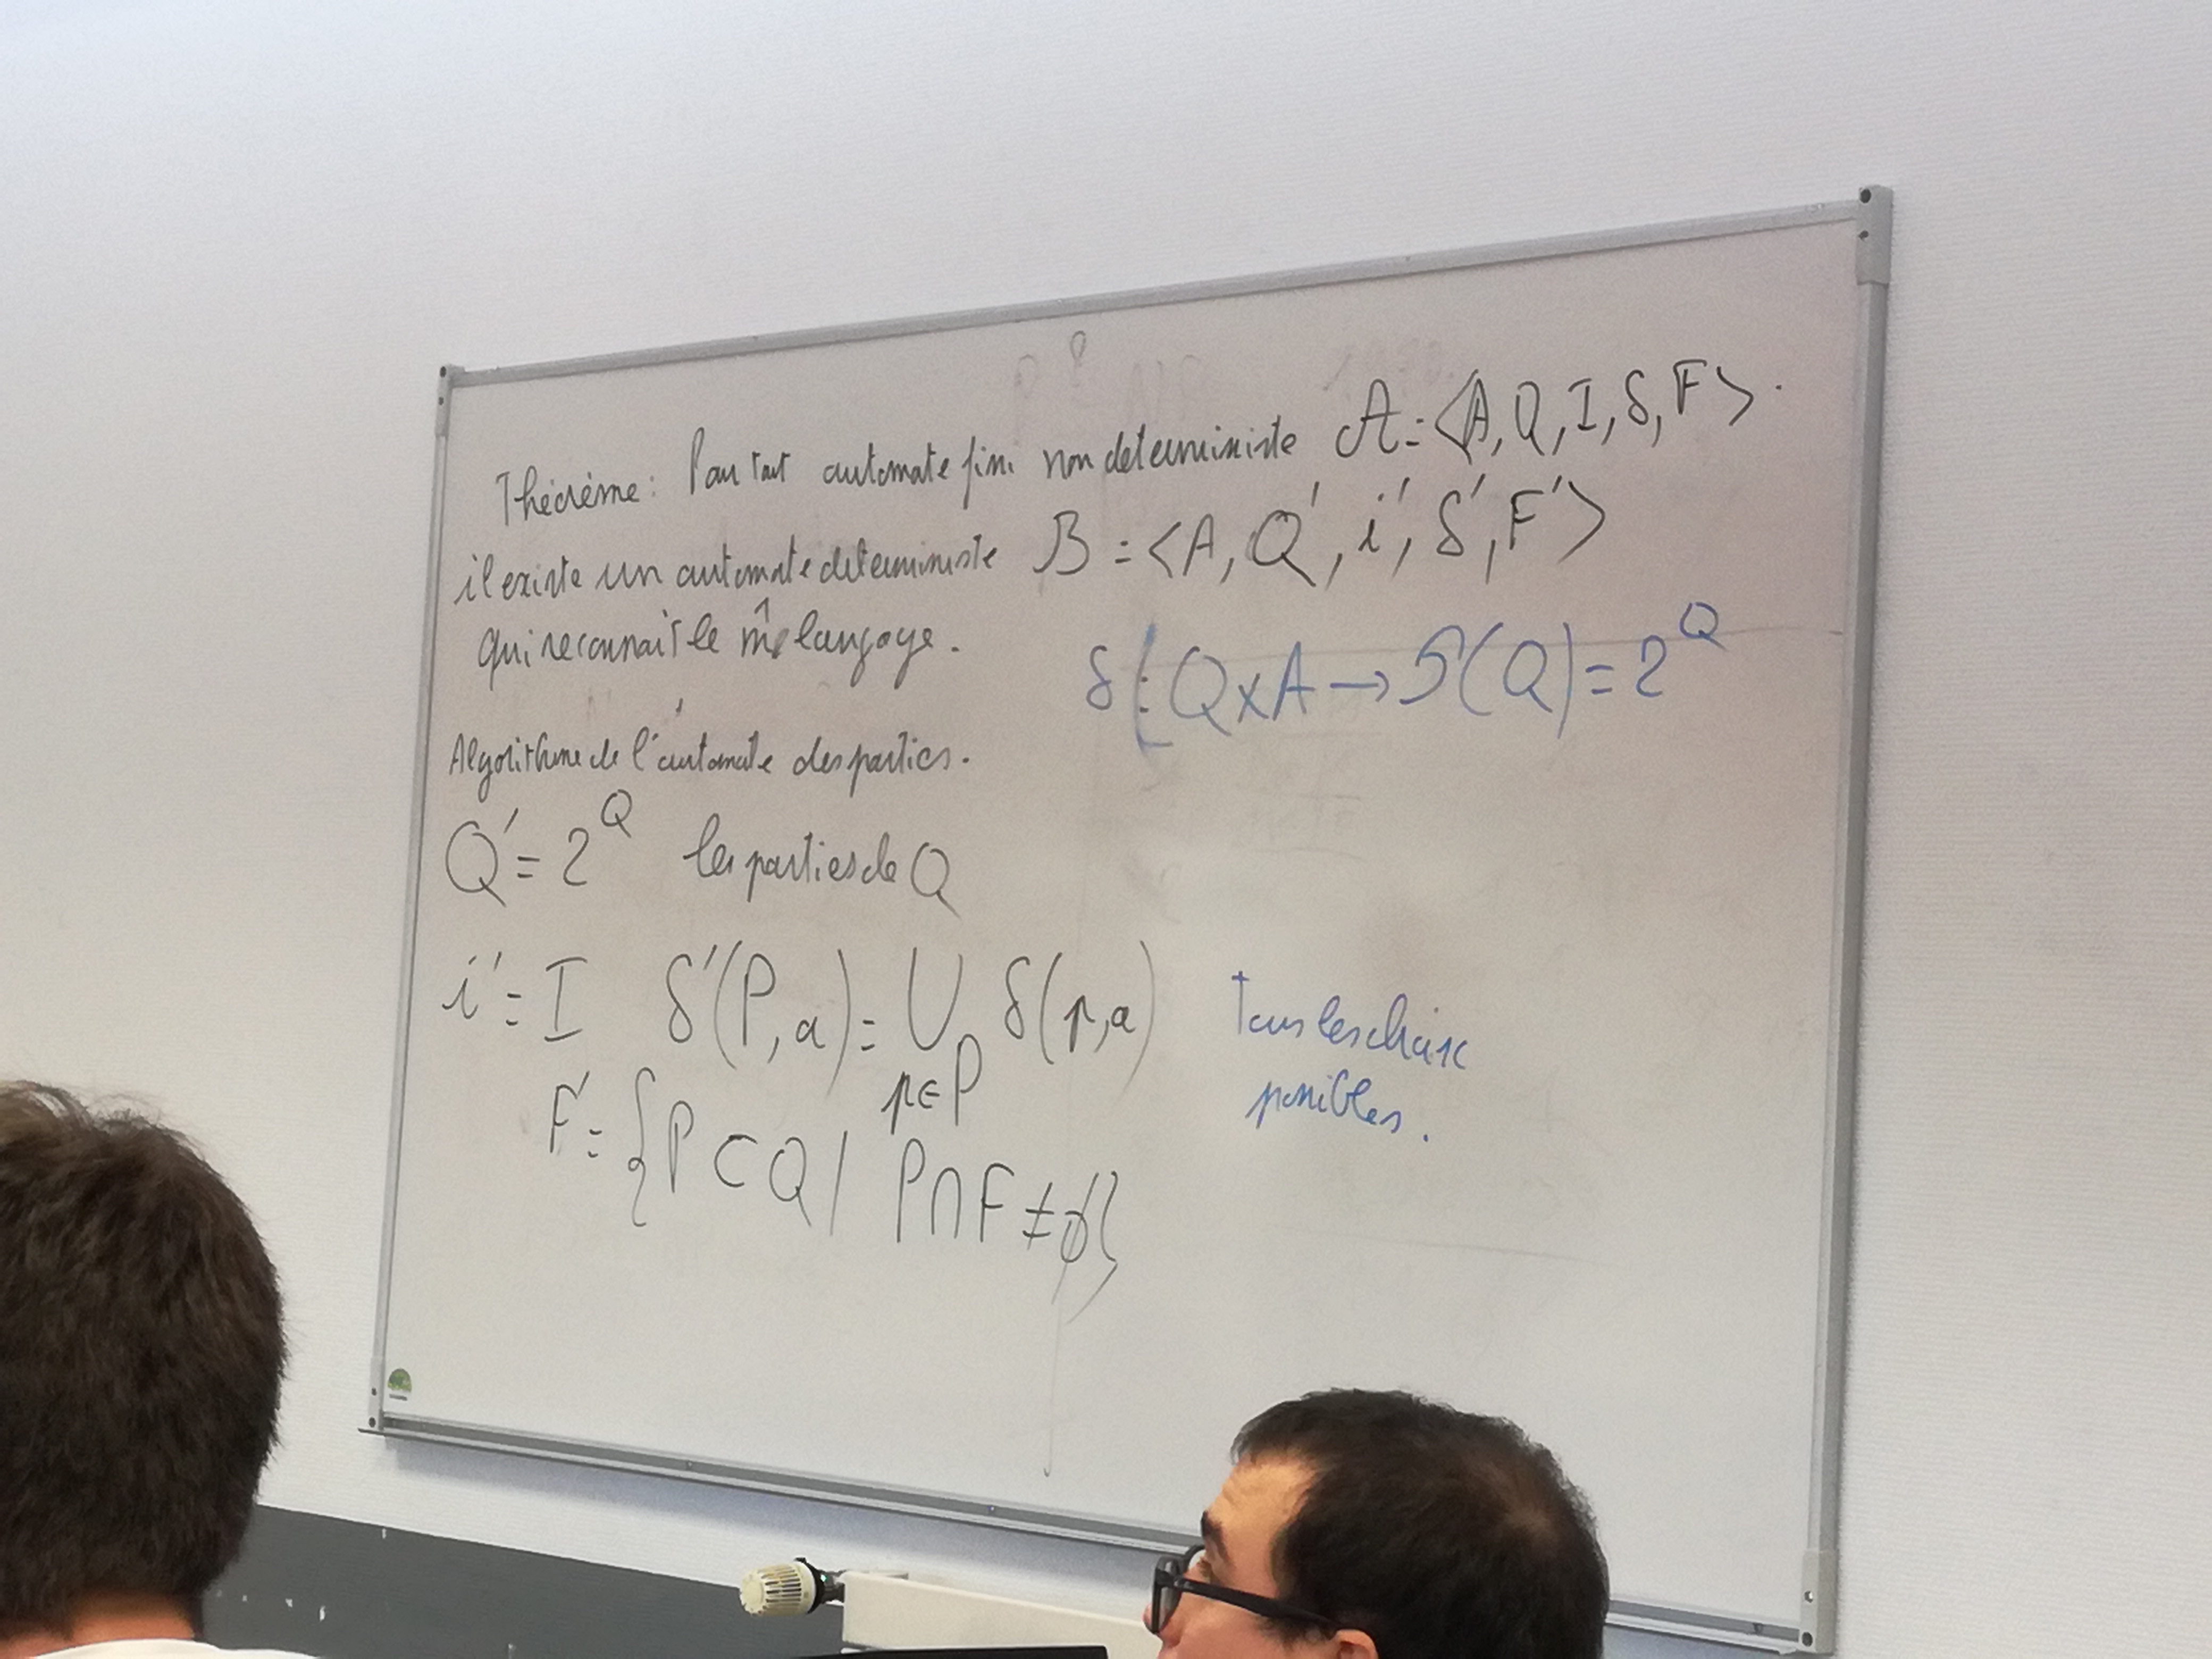 Théorème: Pour tout automate fini non deterministe 𝒜 = <A, Q, I, δ, F>.
il existe un automate deterministe ℬ = <A, Q', i', δ', F'>
qui reconnaît le m̂ langage.
δ : Q x A → 𝒫(Q) = 2^Q
Algorithme de l'automate des parties.
Q' = 2^Q les parties de Q
i' = I δ'(P, a) = ∪ δ(p, a)
p ∈ P
Tous les choix
possibles.
F' = {P ⊂ Q / P ∩ F ≠ ∅}